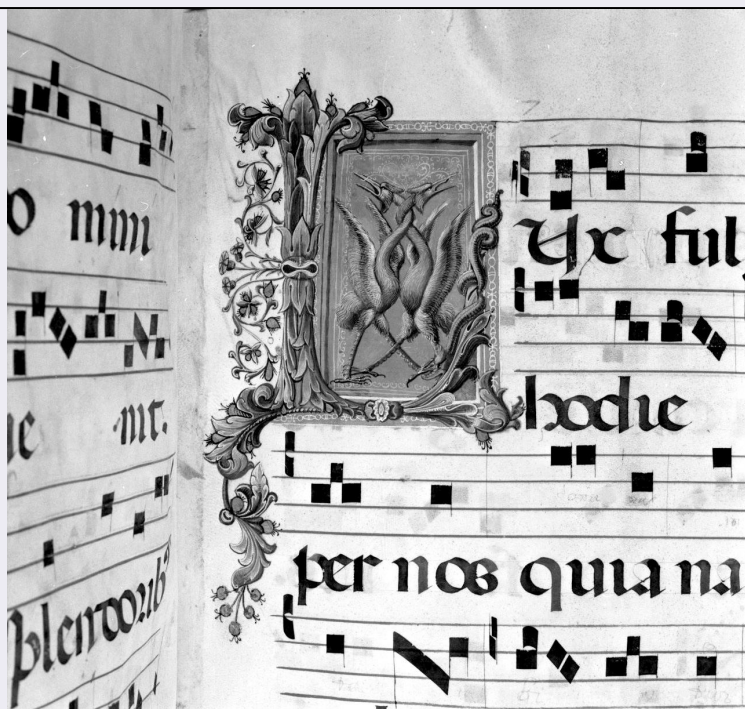 o mini
plendorib
LUx ful
hodie
per nos quia na